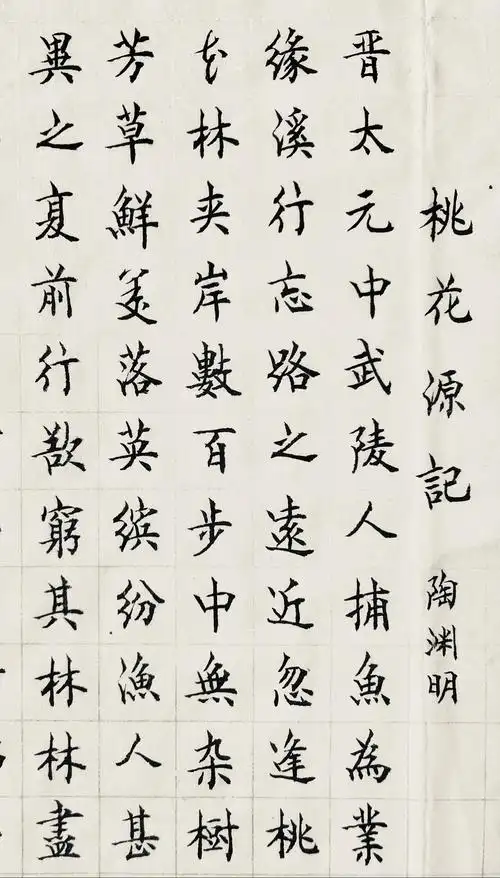 桃花源記 陶渊明
晋太元中武陵人捕魚為業
緣溪行忘路之遠近忽逢桃
花林夹岸數百步中無杂樹
芳草鮮美落英缤紛漁人甚
異之复前行欲窮其林林盡